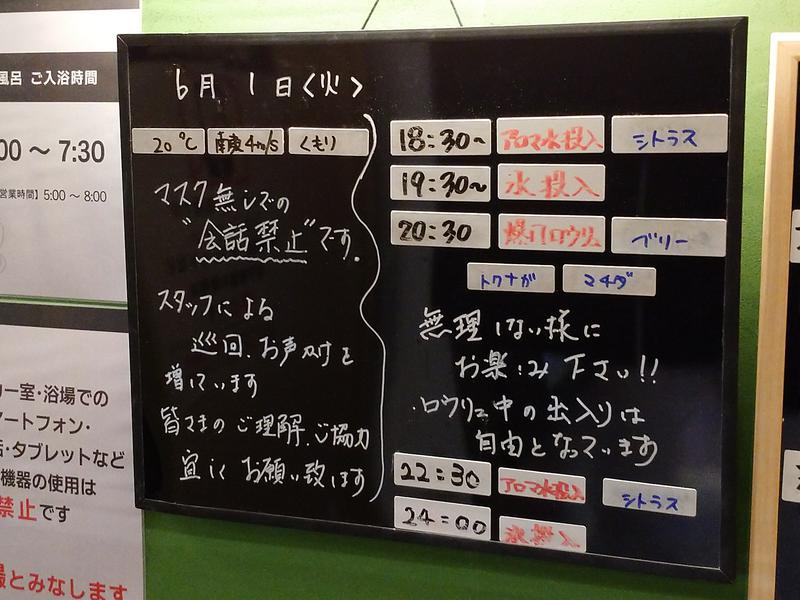 風呂 ご入浴時間
00 ～ 7:30
営業時間】5:00 ～ 8:00
リー室・浴場での
ートフォン・
話・タブレットなど
機器の使用は
禁止です
撮とみなします
6月 1日<火>
20℃ 南東4m/s くもり
マスク無しでの
"会話禁止"です。
スタッフによる
巡回、お声がけを
増しています
皆さまのご理解、ご協力
宜しくお願い致します
18:30~ アロマ水投入 シトラス
19:30~ 氷投入
20:30 爆風ロウリュ ブリー
トクナガ マキダ
無理しない様に
お楽しみ下さい!!
・ロウリュ中の出入りは
自由となっています
22:30 アロマ水投入 シトラス
24:00 氷投入